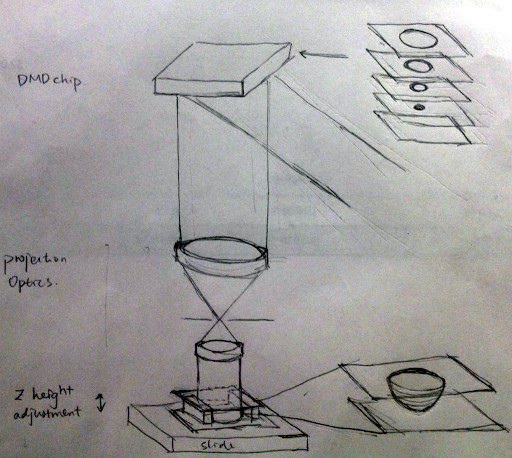 DMD chip
projection
Optics.
Z height
adjustment
slide